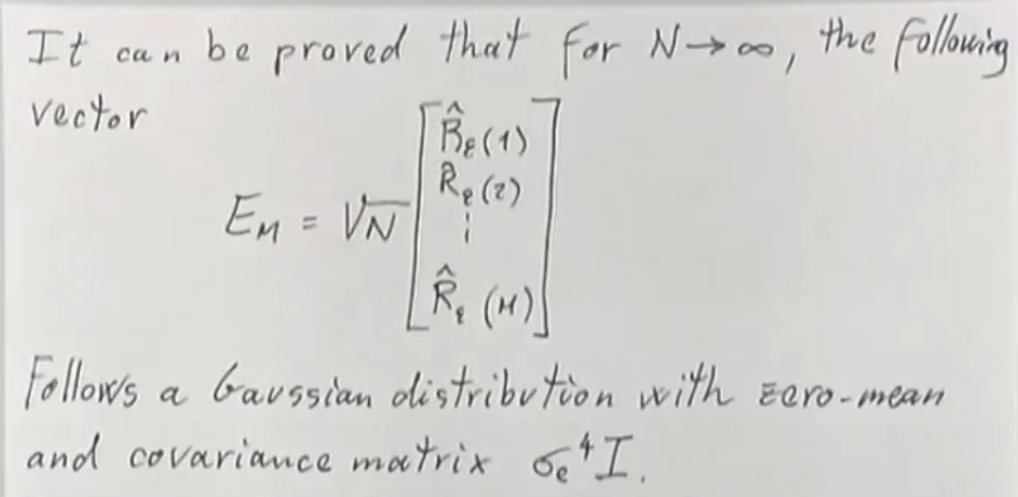 It can be proved that for N→∞, the following
vector
E_M = √N [ R̂_ε(1)
R̂_ε(2)
⋮
R̂_ε(M) ]
Follows a Gaussian distribution with zero-mean
and covariance matrix σ_e⁴I.